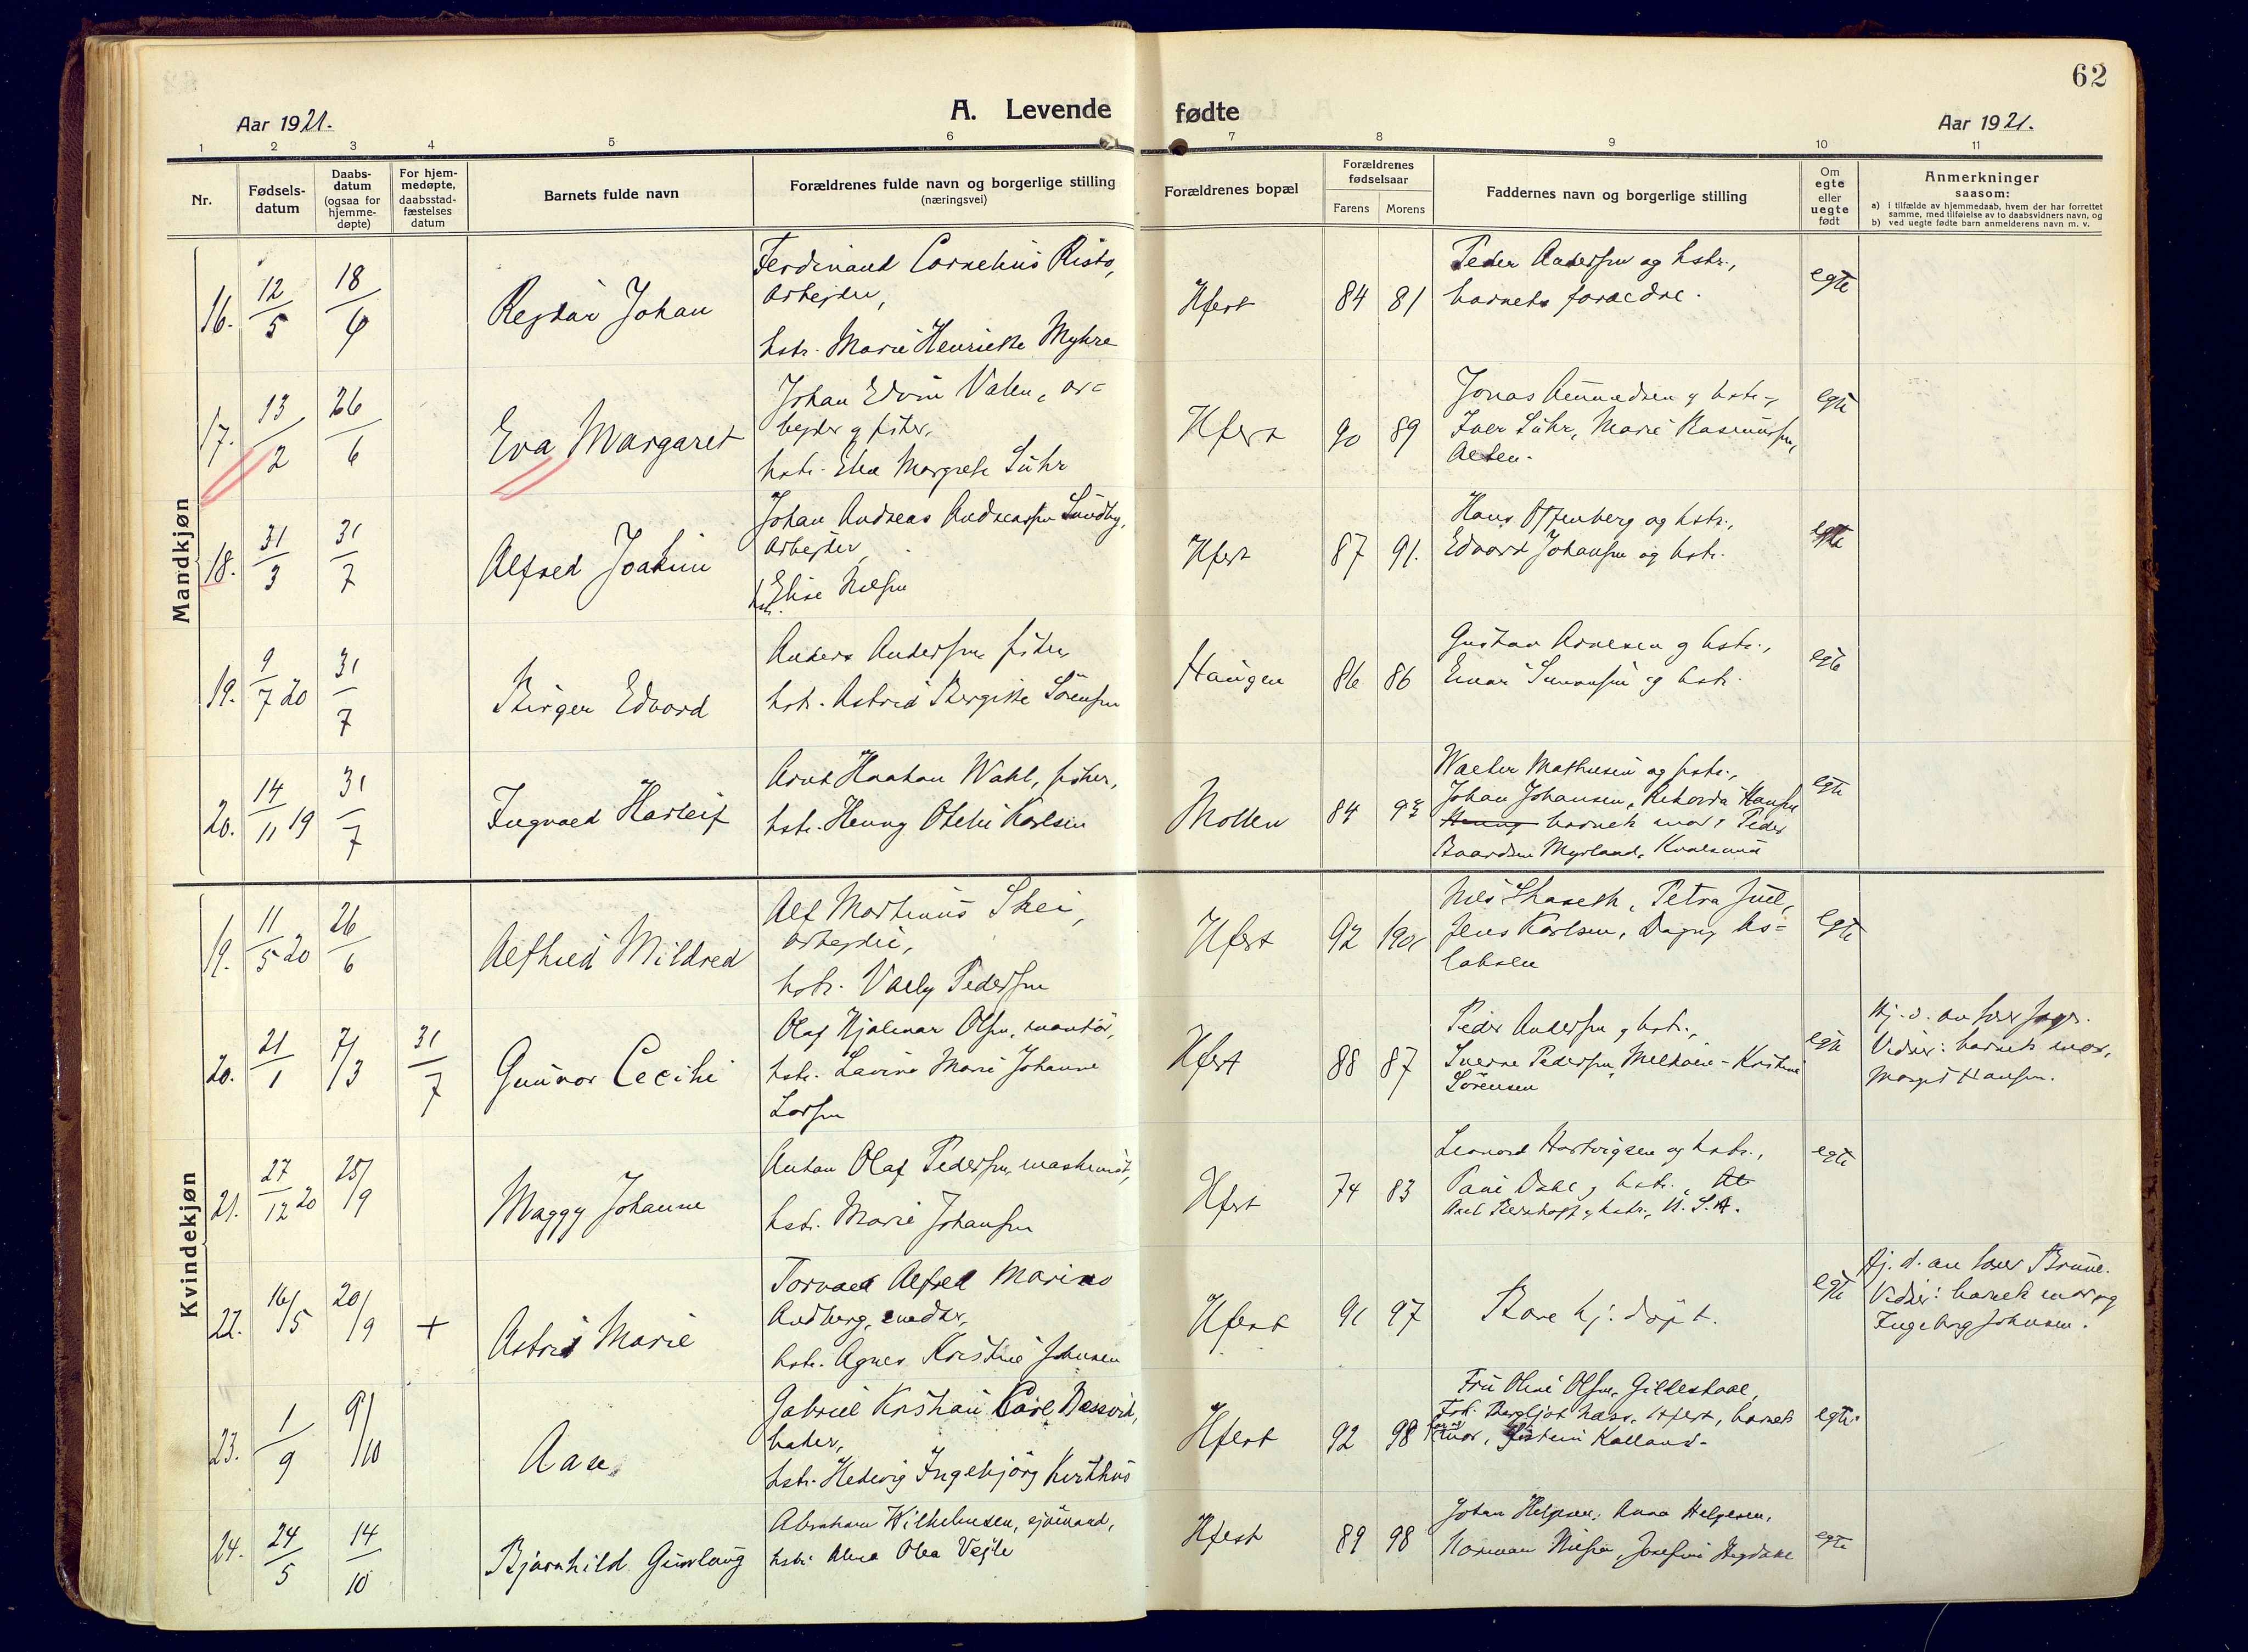 62
A. Levende fødte
Aar 1921.
Aar 1921.
1 2 3 4 5 6 7 8 9 10 11
Nr.
Fødsels-
datum
Daabs-
datum
(ogsaa for
hjemme-
døpte)
For hjem-
medøpte,
daabsstad-
fæstelses
datum
Barnets fulde navn
Forældrenes fulde navn og borgerlige stilling
(næringsvei)
Forældrenes bopæl
Forældrenes
fødselsaar
Farens Morens
Faddernes navn og borgerlige stilling
Om
egte
eller
uegte
født
Anmerkninger
saasom:
a) i tilfælde av hjemmedaab, hvem der har forrettet
samme, med tilføielse av to daabsvidners navn, og
b) ved uegte fødte barn anmelderens navn m. v.
Mandkjøn
16. 12/5 18/6
Rejdar Johan
Ferdinand Cornelius Risto,
arbejder,
hstr. Marie Henriette Myhre
Hfest 84 81
Peder Andersen og hstr.,
barnets forældre.
egte
17. 13/2 26/6
Eva Margaret
Johan Edvin Valen, ar=
bejder og fisker,
hstr. Elise Margrete Suhr
Hfest 90 89
Jonas Amundsen og hstr.,
Iver Suhr, Marie Rasmussen,
Alten.
egte
18. 31/3 31/7
Alfred Joakim
Johan Andreas Andreassen Sundby,
arbejder,
hstr. Elise Nilsen
Hfest 87 91.
Hans Offenberg og hstr.,
Edvard Johansen og hstr.
egte
19. 9/7 20 31/7
Birger Edvard
Anders Andersen, fisker
hstr. Astrid Bergitte Sørensen
Haugen 86 86
Gustav Arnesen og hstr.,
Einar Simonsen og hstr.
egte
20. 14/11 19 31/7
Ingvald Harleif
Arnt Haakon Wahl, fisker,
hstr. Henny Otelie Karlsen
Mollen 84 93
Walter Mathisen og hstr.,
Johan Johansen, Rikarda Hansen
Henny barnets mor, Peder
Baardsen Myrland, Kvalsund
egte
Kvindekjøn
19. 11/5 20 26/6
Alfhild Mildred
Alf Martinius Skei,
arbejder,
hstr. Vally Pedersen
Hfest 92 1901
Nils Skaseth, Petra Juul,
Jens Karlsen, Dagny As=
laksen
egte
20. 21/1 7/3 31/7
Gunvor Cecilie
Olaf Hjalmar Olsen, montør,
hstr. Lavina Marie Johanne
Larsen
Hfest 88 87
Peder Andersen og hstr.,
Sverre Pedersen, Melkøen - Kristine
Sørensen
egte
Hj. d. av
Vidner: barnets mor,
Margit Hansen.
21. 27/12 20 25/9
Maggy Johanne
Anton Olaf Pedersen, maskinist,
hstr. Marie Johansen
Hfest 74 83
Leonard Hartvigsen og hstr.,
Paul Dahl og hstr.,
Axel og hstr., U.S.A.
egte
22. 16/5 20/9 +
Astrid Marie
Torvald Alfred Marino
Andberg, snedker,
hstr. Agnes Kristine Johnsen
Hfest 91 97
Bare hj. døpt.
egte
Hj. d. av Brune.
Vidner: barnets mor og
Ingeborg Johnsen.
23. 1/9 9/10
Aase
Gabriel Kristian Carl
baker,
hstr. Hedevig Ingebjørg
Hfest 92 98
Fru Oline Olsen, Gildeskaal,
Frk. Bergljot Næss, Hfest, barnets
mor, Kalland.
egte
24. 24/5 14/10
Bjarnhild Gunlaug
Abraham Wilhelmsen, sjømand,
hstr. Alma Olea Vejle
Hfest 89 98
Johan Helgesen, Anna Helgesen,
Norman Nilsen, Josefine Hegdahl
egte